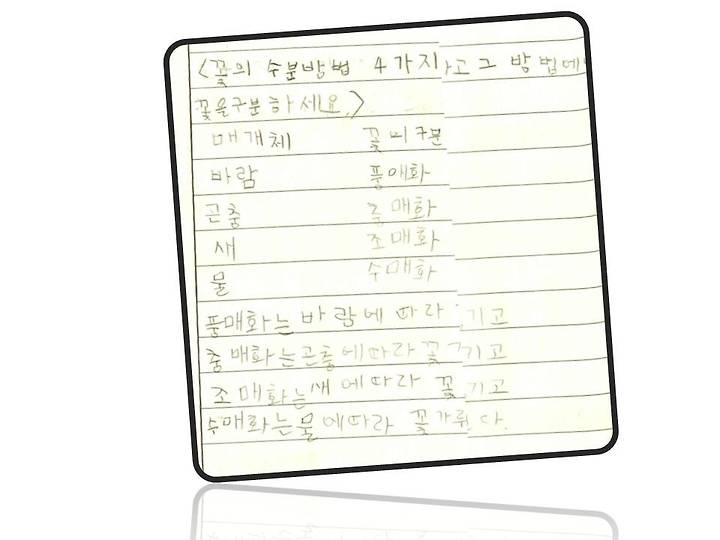 <꽃의 수분방법 4가지 고 그 방법에
꽃을구분하세요.>
매개체 꽃의구분
바람 풍매화
곤충 충매화
새 조매화
물 수매화
풍매화는 바람에 따라 기고
충매화는곤충에따라꽃 기고
조매화는새에따라 꽃 기고
수매화는물에따라 꽃가 다.